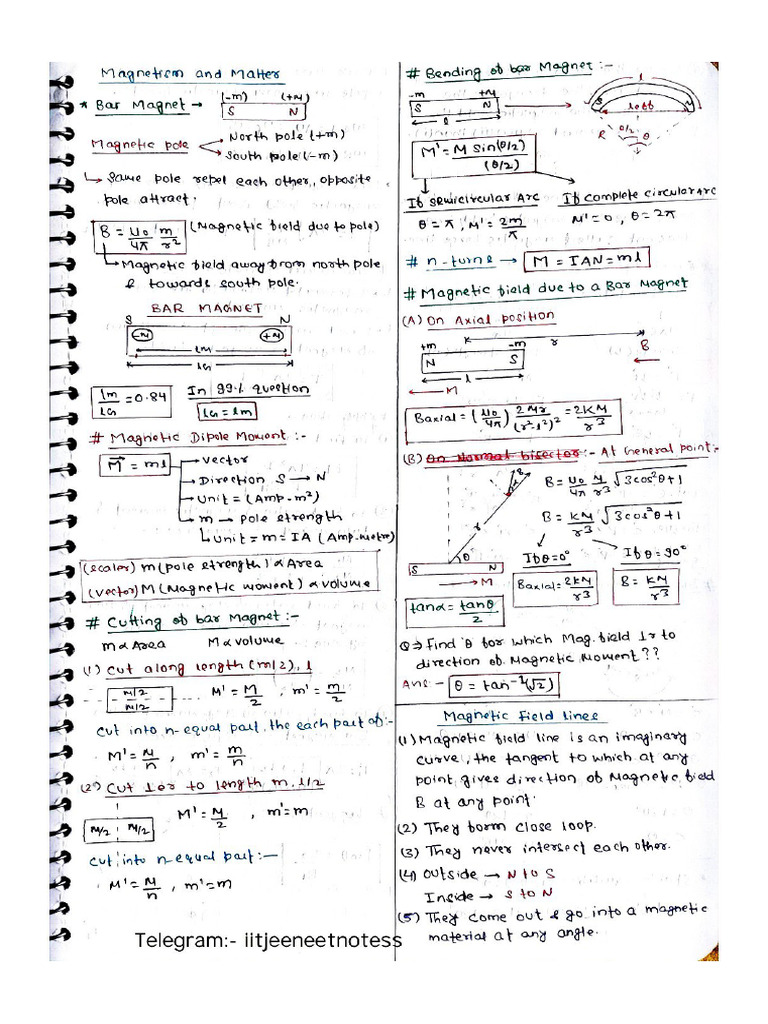 Magnetism and Matter
* Bar Magnet →
(-m) (+m)
S N
Magnetic pole
North pole (+m)
South pole (-m)
Same pole repel each other, opposite
pole attract.
B = μ0/4π m/r² (Magnetic field due to pole)
Magnetic field away from north pole
& towards south pole.
BAR MAGNET
S N
-m +m
lm
lG
lm/lG = 0.84 In 99% question
lG = lm
# Magnetic Dipole Moment :-
M = ml → vector
→ Direction S → N
→ Unit = (Amp-m²)
→ m → pole strength
Unit = m = IA (Amp-metre)
(scaler) m (pole strength) α Area
(vector) M (Magnetic moment) α volume
# Cutting of bar Magnet :-
m α Area M α volume
(1) Cut along length (m/2), l
M/2
M/2
M' = M/2 , m' = m/2
Cut into n-equal part, the each part of :-
M' = M/n , m' = m/n
(2) Cut ⊥er to length m, l/2
M/2 M/2
M' = M/2 , m' = m
Cut into n-equal part :-
M' = M/n , m' = m
# Bending of bar Magnet :-
-m +m
S N
l
l
R θ/2 θ
M' = M sin(θ/2)/(θ/2)
If semicircular Arc If complete circular Arc
θ = π , M' = 2m/π M' = 0 , θ = 2π
# n-turns → M = IAN = ml
# Magnetic field due to a Bar Magnet
(A) On Axial position
+m -m r B
N S
l
M
Baxial = (μ0/4π) 2Mr/(r²l²)² = 2KM/r³
(B) On Normal bisector :- At General point :-
B
α
r
θ
S N
M
B = μ0/4π M/r³ √3cos²θ+1
B = KM/r³ √3cos²θ+1
If θ = 0° If θ = 90°
Baxial = 2KM/r³ B = KM/r³
tanα = tanθ/2
Q ⇒ Find θ for which Mag. field ⊥r to
direction of Magnetic Moment??
Ans :- θ = tan⁻¹(√2)
Magnetic Field lines
(1) Magnetic field line is an imaginary
curve, the tangent to which at any
point gives direction of Magnetic field
B at any point.
(2) They form close loop.
(3) They never intersect each other.
(4) Outside → N to S
Inside → S to N
(5) They come out & go into a magnetic
material at any angle.
Telegram:- iitjeeneetnotess